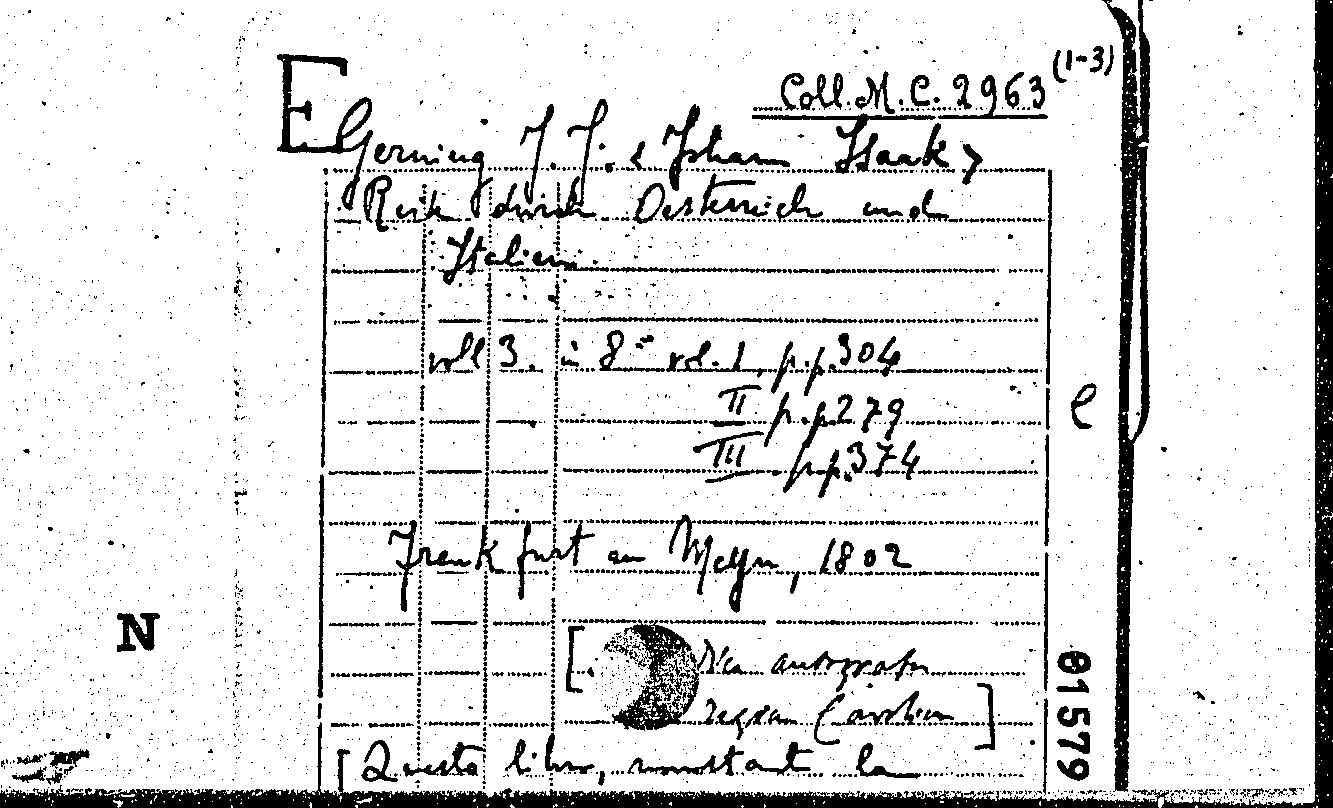 E
Coll. M. C. 2963 (1-3)
Gerning J. J. < Johann Isaak >
Reise durch Oesterreich und
Italien.
voll 3. in 8° vol. 1, p.p. 304
II p.p. 279
III p.p. 374
e
Frankfurt am Mayn, 1802
N
[. autografa
]
01579
[Questo libro, nonostante la